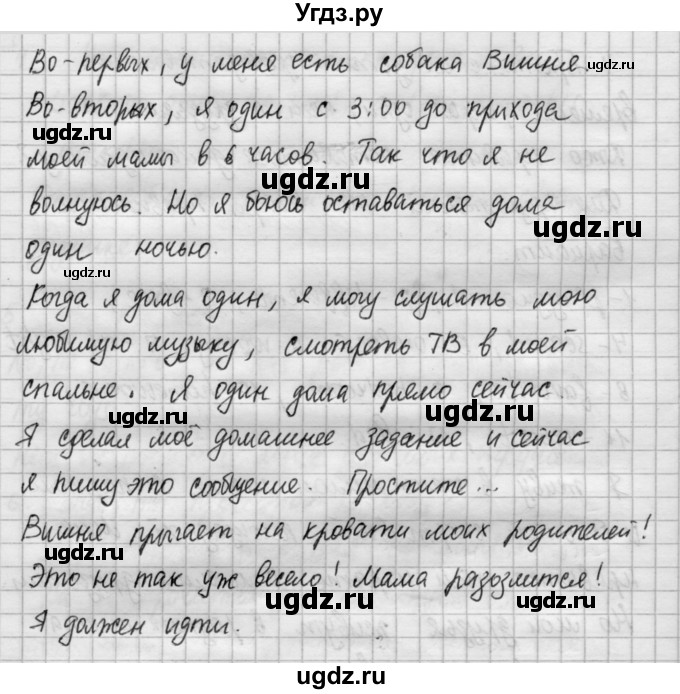 Угдз.ру
Во-первых, у меня есть собака Вишня.
Во-вторых, я один с 3:00 до прихода
моей мамы в 6 часов. Так что я не
ugdz.ru
ugdz.ru
волнуюсь. Но я боюсь оставаться дома
ugdz.ru
один ночью.
ugdz.ru
Когда я дома один, я могу слушать мою
любимую музыку, смотреть ТВ в моей
спальне. Я один дома прямо сейчас.
ugdz.ru
ugdz.ru
Я сделал моё домашнее задание и сейчас
я пишу это сообщение. Простите...
Вишня прыгает на кровати моих родителей!
ugdz.ru
Это не так уж весело! Мама разозлится!
ugdz.ru
Я должен идти.
ugdz.ru
ugdz.ru